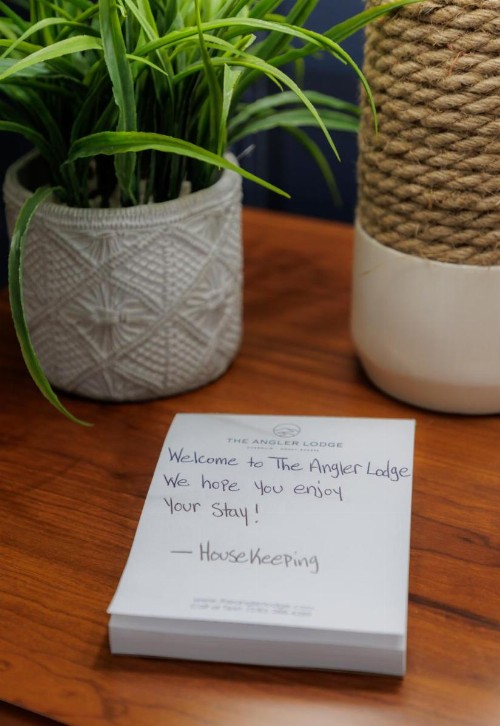 THE ANGLER LODGE
Welcome to The Angler Lodge
We hope you enjoy
Your Stay!
— HouseKeeping
www.theanglerlodge.com